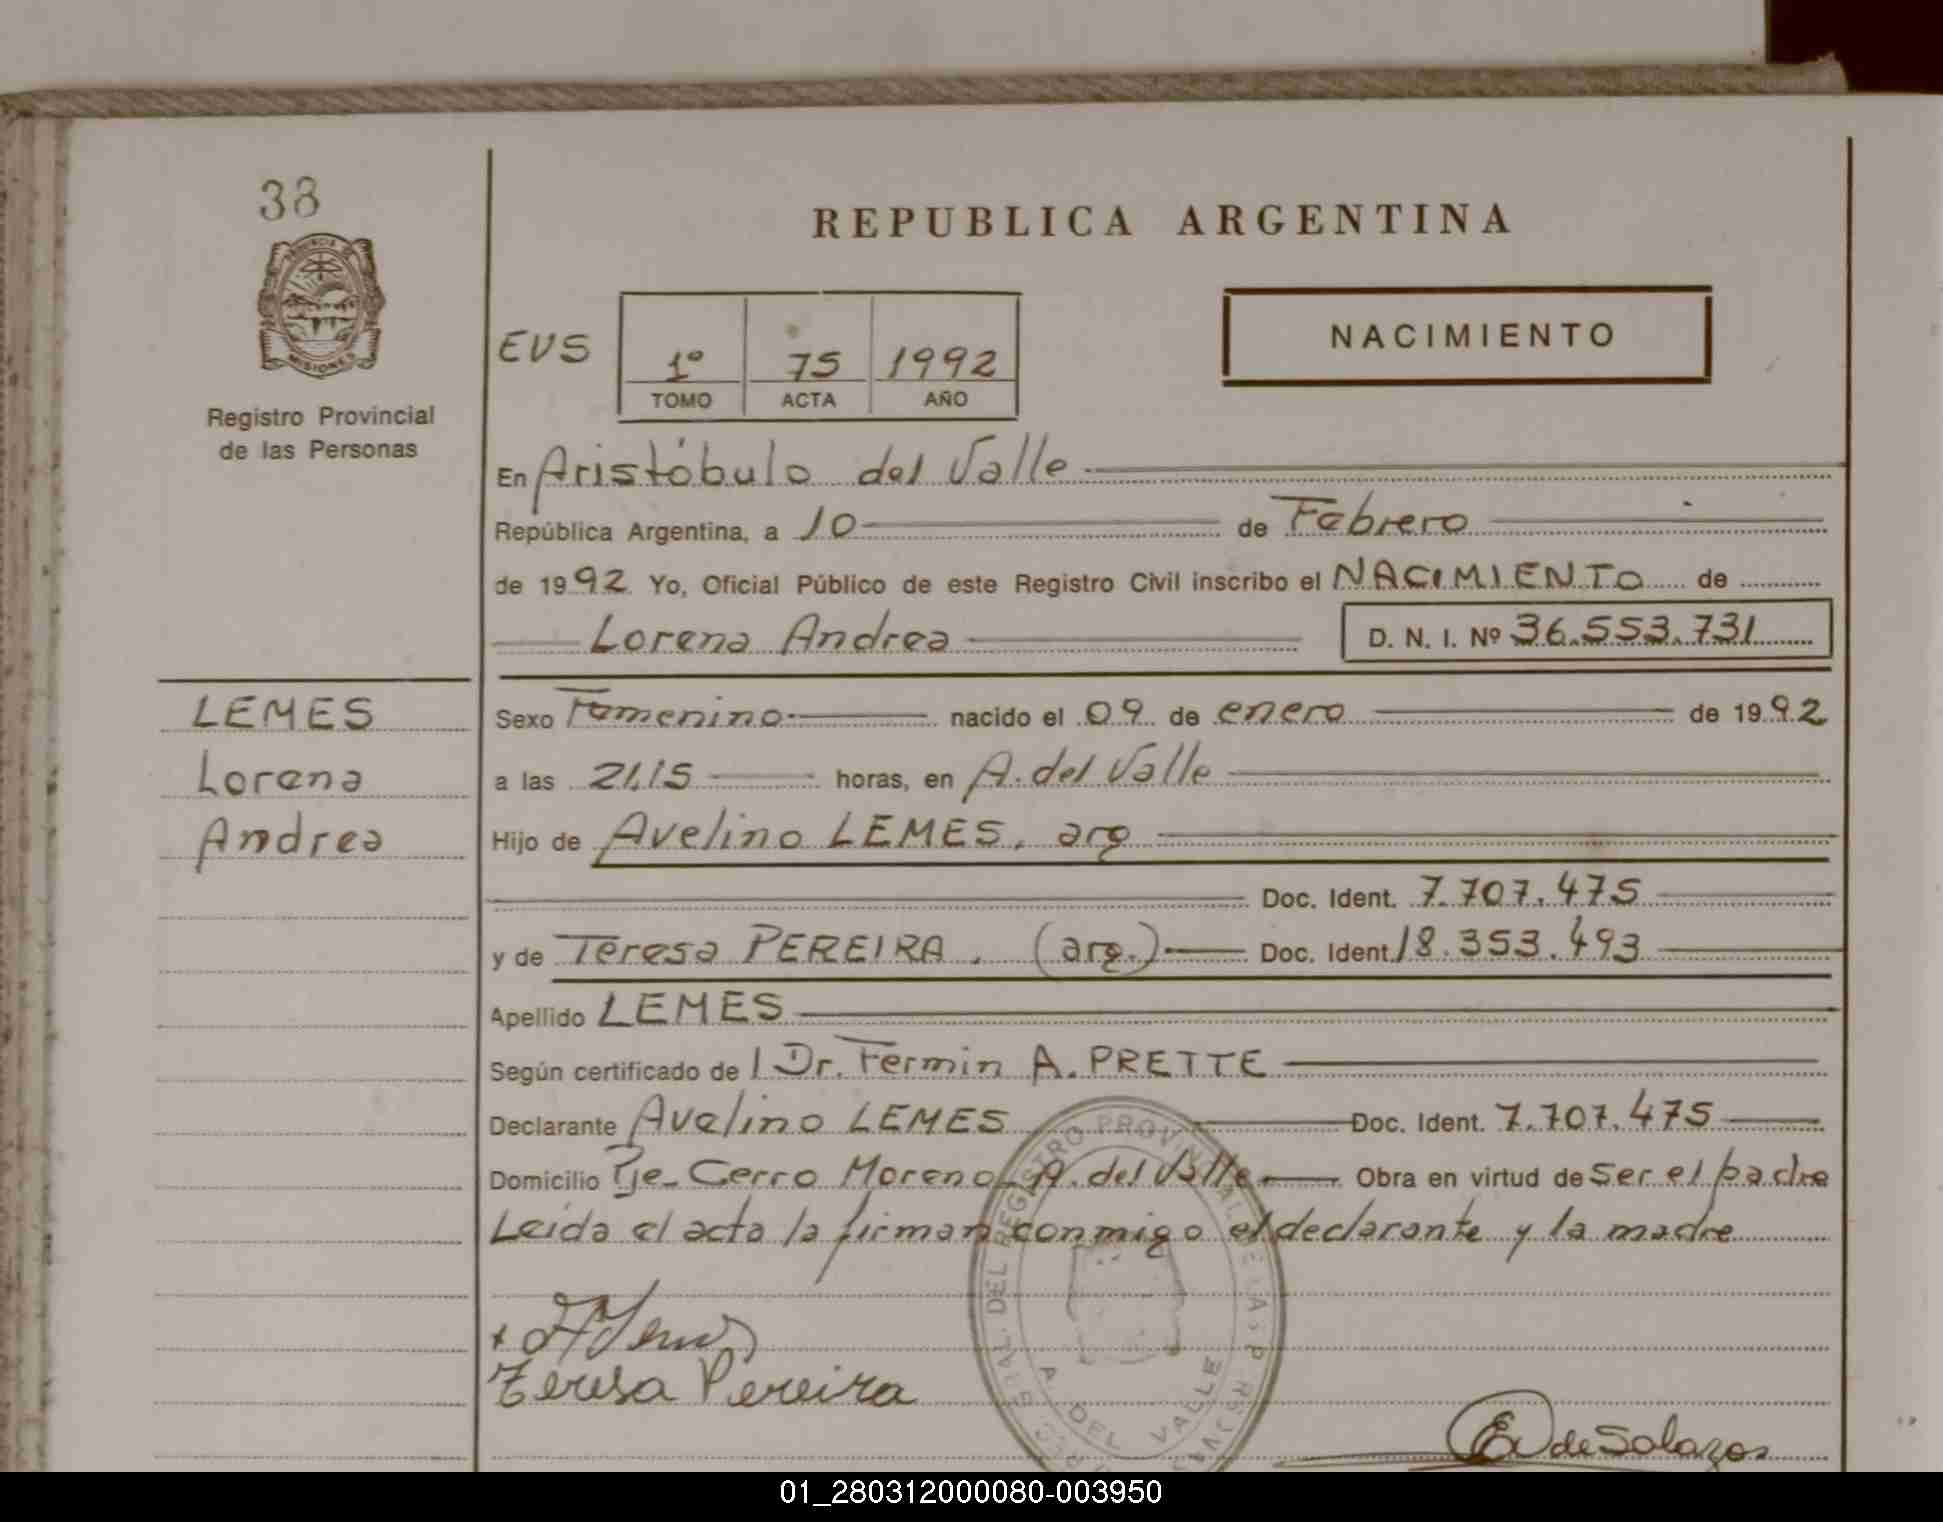 38
PROVINCIA DE
MISIONES
Registro Provincial
de las Personas
REPUBLICA ARGENTINA
EVS
1º 75 1992
TOMO ACTA AÑO
NACIMIENTO
En Aristóbulo del Valle
República Argentina, a 10 de Febrero
de 1992 Yo, Oficial Público de este Registro Civil inscribo el NACIMIENTO de
Lorena Andrea D. N. I. Nº 36.553.731
LEMES
Lorena
Andrea
Sexo Femenino nacido el 09 de enero de 1992
a las 21,15 horas, en A. del Valle
Hijo de Avelino LEMES, arg
Doc. Ident. 7.707.475
y de Teresa PEREIRA, (arg.) Doc. Ident. 18.353.493
Apellido LEMES
Según certificado de l Dr. Fermin A. PRETTE
Declarante Avelino LEMES Doc. Ident. 7.707.475
Domicilio Pje. Cerro Moreno A. del Valle Obra en virtud de ser el padre
Leida el acta la firman conmigo el declarante y la madre
Teresa Pereira
de Salazar
DEL REGISTRO PROVINCIAL DE LAS P
A. DEL VALLE
01_280312000080-003950